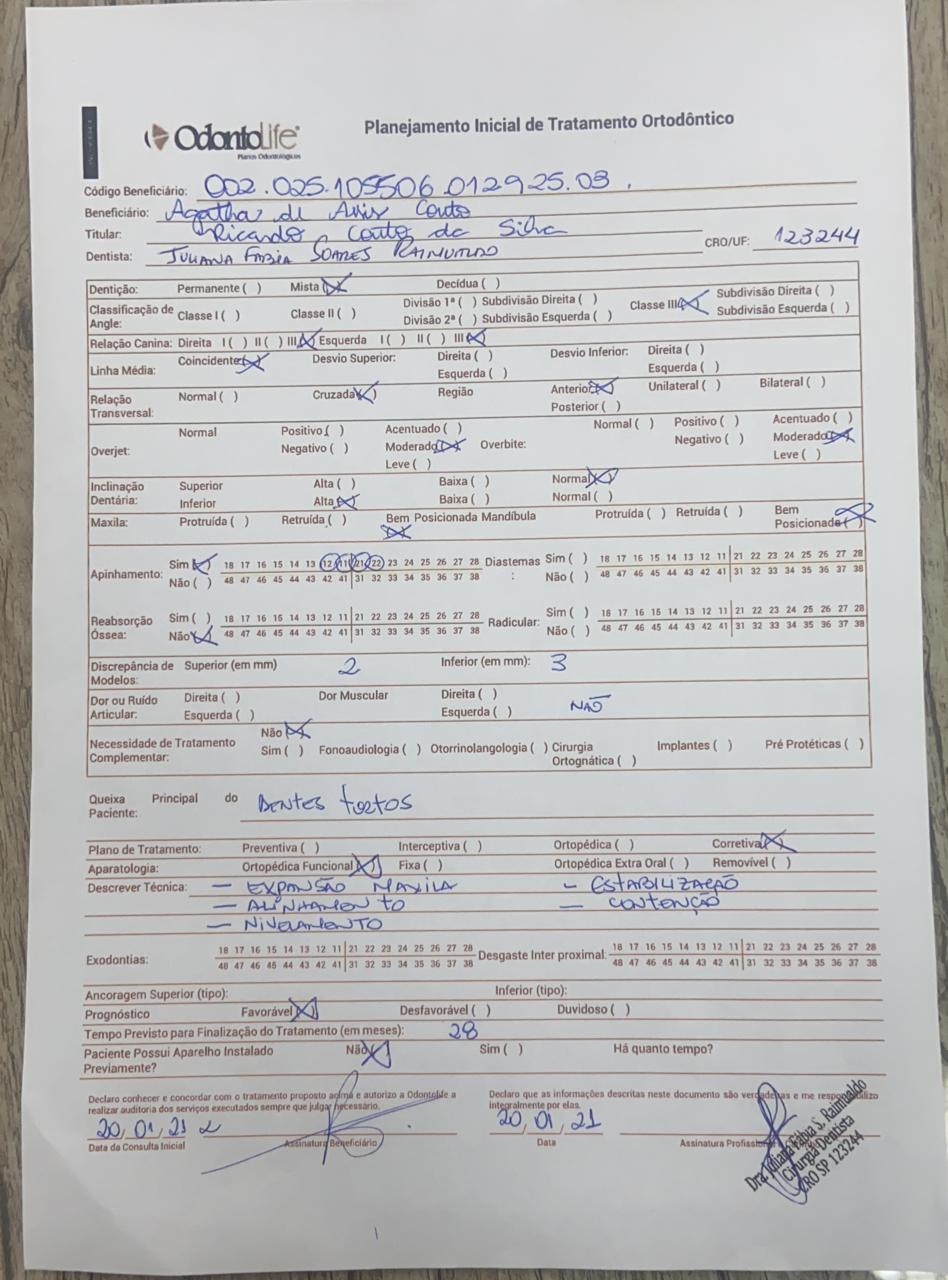 OdontoLife
Planos Odontológicos
Planejamento Inicial de Tratamento Ortodôntico
Código Beneficiário: 002.025.105506.012925.03.
Beneficiário: Agatha de Assis Couto
Titular: Ricardo Couto da Silva
Dentista: JULIANA FABIA SOARES RAIMUNDO CRO/UF: 123244
Dentição: Permanente ( ) Mista (X) Decídua ( )
Classificação de Angle: Classe I ( ) Classe II ( ) Divisão 1ª ( ) Subdivisão Direita ( ) Classe III (X) Subdivisão Direita ( )
Divisão 2ª ( ) Subdivisão Esquerda ( ) Subdivisão Esquerda ( )
Relação Canina: Direita I ( ) II ( ) III (X) Esquerda I ( ) II ( ) III (X)
Linha Média: Coincidente (X) Desvio Superior: Direita ( ) Desvio Inferior: Direita ( )
Esquerda ( ) Esquerda ( )
Relação Transversal: Normal ( ) Cruzada (X) Região Anterior (X) Unilateral ( ) Bilateral ( )
Posterior ( )
Overjet: Normal Positivo ( ) Acentuado ( ) Overbite: Normal ( ) Positivo ( ) Acentuado ( )
Negativo ( ) Moderado (X) Negativo ( ) Moderado (X)
Leve ( ) Leve ( )
Inclinação Dentária: Superior Alta ( ) Baixa ( ) Normal (X)
Inferior Alta (X) Baixa ( ) Normal ( )
Maxila: Protruída ( ) Retruída ( ) Bem Posicionada (X) Mandíbula Protruída ( ) Retruída ( ) Bem Posicionada (X)
Apinhamento: Sim (X) 18 17 16 15 14 13 12 11 21 22 23 24 25 26 27 28 Diastemas : Sim ( ) 18 17 16 15 14 13 12 11 21 22 23 24 25 26 27 28
Não ( ) 48 47 46 45 44 43 42 41 31 32 33 34 35 36 37 38 Não ( ) 48 47 46 45 44 43 42 41 31 32 33 34 35 36 37 38
Reabsorção Óssea: Sim ( ) 18 17 16 15 14 13 12 11 21 22 23 24 25 26 27 28 Radicular: Sim ( ) 18 17 16 15 14 13 12 11 21 22 23 24 25 26 27 28
Não (X) 48 47 46 45 44 43 42 41 31 32 33 34 35 36 37 38 Não ( ) 48 47 46 45 44 43 42 41 31 32 33 34 35 36 37 38
Discrepância de Modelos: Superior (em mm) 2 Inferior (em mm): 3
Dor ou Ruído Articular: Direita ( ) Dor Muscular Direita ( )
Esquerda ( ) Esquerda ( ) NÃO
Necessidade de Tratamento Complementar: Não (X)
Sim ( ) Fonoaudiologia ( ) Otorrinolangologia ( ) Cirurgia Ortognática ( ) Implantes ( ) Pré Protéticas ( )
Queixa Principal do Paciente: DENTES tortos
Plano de Tratamento: Preventiva ( ) Interceptiva ( ) Ortopédica ( ) Corretiva (X)
Aparatologia: Ortopédica Funcional (X) Fixa ( ) Ortopédica Extra Oral ( ) Removível ( )
Descrever Técnica: – EXPANSÃO MAXILA – ESTABILIZAÇÃO
– ALINHAMENTO – CONTENÇÃO
– NIVELAMENTO
Exodontias: 18 17 16 15 14 13 12 11 21 22 23 24 25 26 27 28 Desgaste Inter proximal: 18 17 16 15 14 13 12 11 21 22 23 24 25 26 27 28
48 47 46 45 44 43 42 41 31 32 33 34 35 36 37 38 48 47 46 45 44 43 42 41 31 32 33 34 35 36 37 38
Ancoragem Superior (tipo): Inferior (tipo):
Prognóstico Favorável (X) Desfavorável ( ) Duvidoso ( )
Tempo Previsto para Finalização do Tratamento (em meses): 28
Paciente Possui Aparelho Instalado Previamente? Não (X) Sim ( ) Há quanto tempo?
Declaro conhecer e concordar com o tratamento proposto acima e autorizo a Odontolife a realizar auditoria dos serviços executados sempre que julgar necessário.
Declaro que as informações descritas neste documento são verdadeiras e me responsabilizo integralmente por elas.
20, 01, 21 20, 01, 21
Data da Consulta Inicial Assinatura Beneficiário Data Assinatura Profissional
Dra. Juliana Fábia S. Raimundo
Cirurgiã Dentista
CRO SP 123244